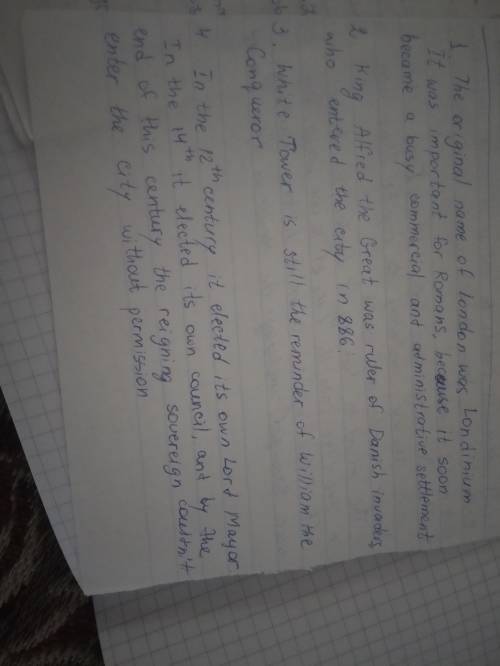 1. The original name of London was Londinium
It was important for Romans, because it soon
became a busy commercial and administrative settlement
2 King Alfred the Great was ruler of Danish invaders
who entered the city in 886.
3. White Tower is still the reminder of William the
Conqueror
4 In the 12th century it elected its own Lord Mayor
In the 14th it elected its own council, and by the
end of this century the reigning sovereign couldn't
enter the city without permission